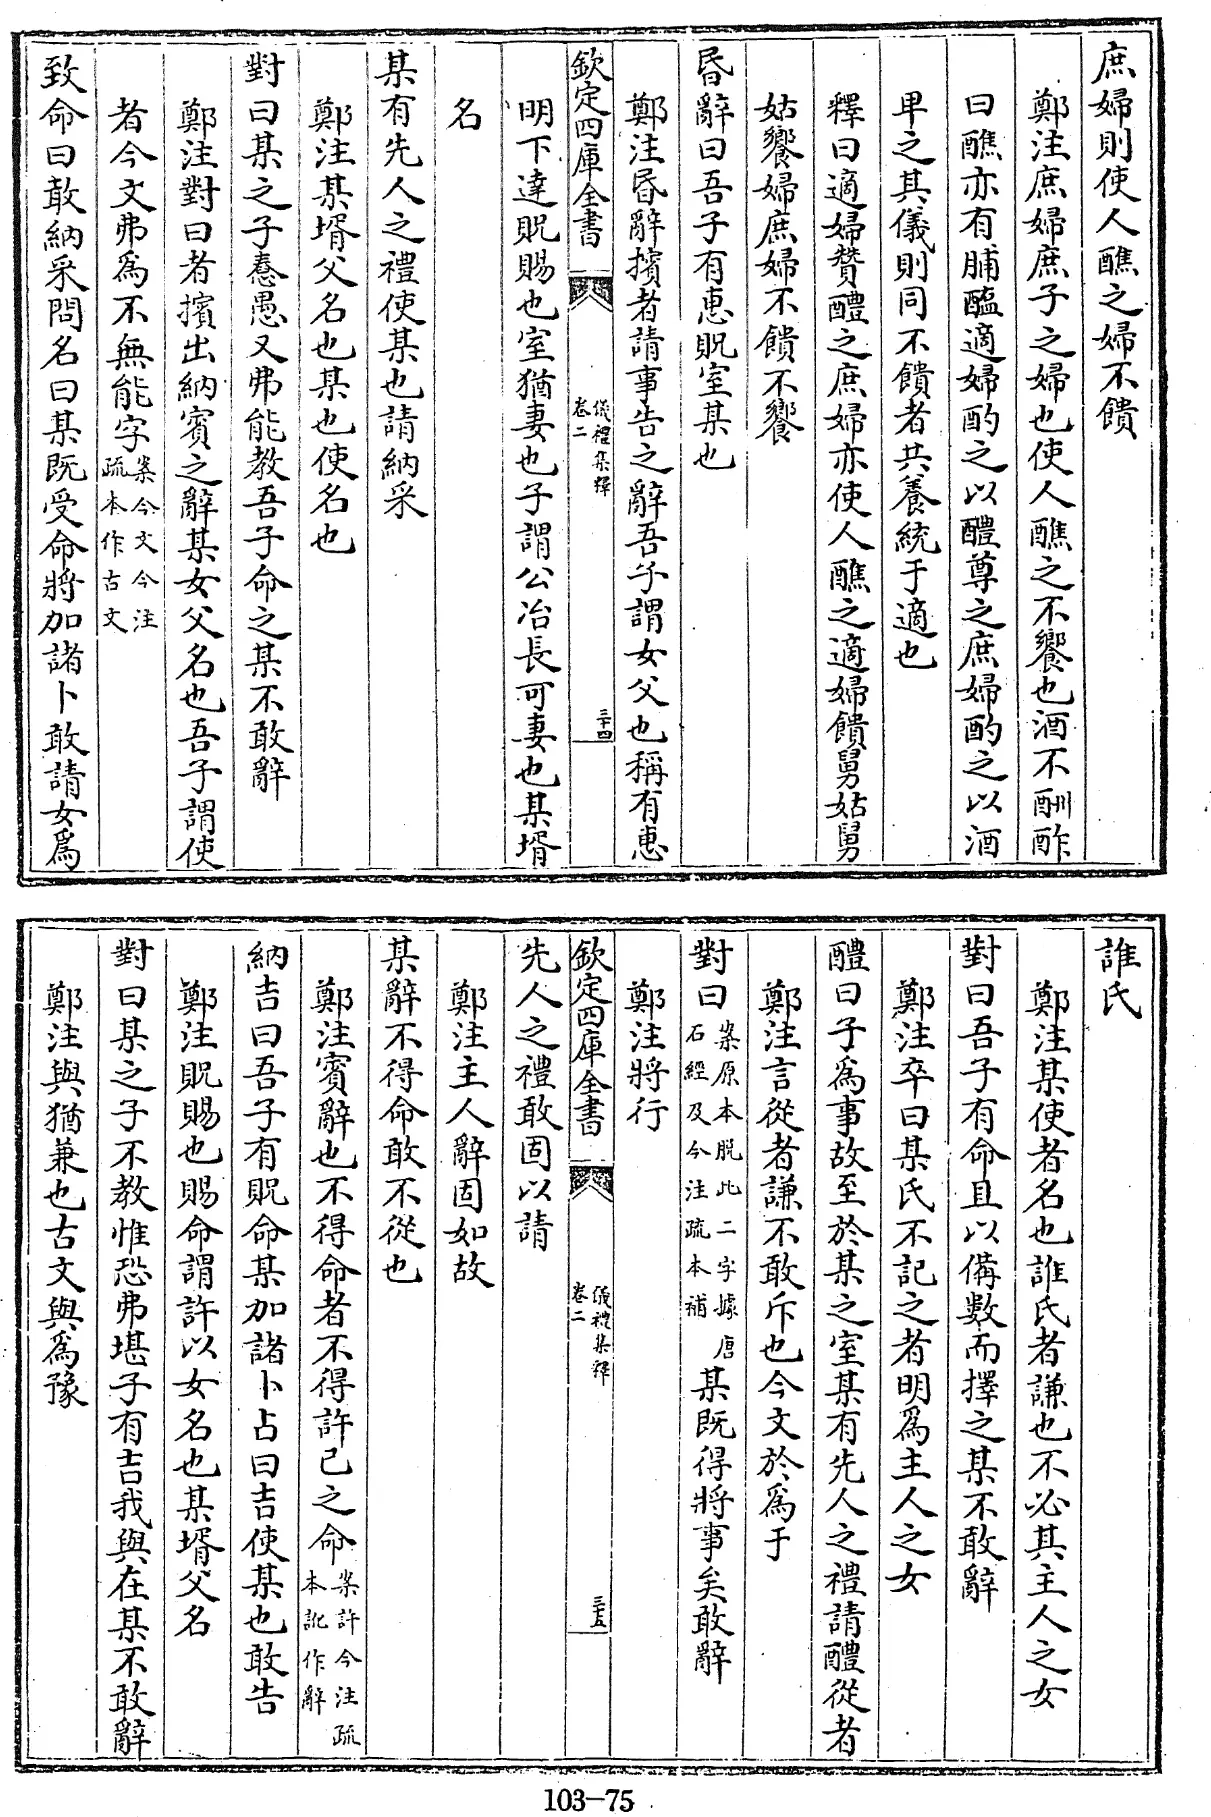 庶婦則使人醮之婦不饋
鄭注庶婦庶子之婦也使人醮之不饗也酒不酬酢
曰醮亦有脯醢適婦酌之以醴尊之庶婦酌之以酒
卑之其儀則同不饋者共養統于適也
釋曰適婦贊醴之庶婦亦使人醮之適婦饋舅姑舅
姑饗婦庶婦不饋不饗
昏辭曰吾子有惠貺室某也
鄭注昏辭擯者請事告之辭吾子謂女父也稱有惠
欽定四庫全書
儀禮集釋
卷二
三十四
明下達貺賜也室猶妻也子謂公冶長可妻也某壻
名
某有先人之禮使某也請納采
鄭注某壻父名也某也使名也
對曰某之子惷愚又弗能教吾子命之某不敢辭
鄭注對曰者擯出納賓之辭某女父名也吾子謂使
者今文弗為不無能字案今文今注疏本作古文
致命曰敢納采問名曰某既受命將加諸卜敢請女為
誰氏
鄭注某使者名也誰氏者謙也不必其主人之女
對曰吾子有命且以備數而擇之某不敢辭
鄭注卒曰某氏不記之者明為主人之女
醴曰子為事故至於某之室某有先人之禮請醴從者
鄭注言從者謙不敢斥也今文於為于
對曰案原本脫此二字據唐石經及今注疏本補某既得將事矣敢辭
鄭注將行
欽定四庫全書
儀禮集釋
卷二
三十五
先人之禮敢固以請
鄭注主人辭固如故
某辭不得命敢不從也
鄭注賓辭也不得命者不得許己之命案許今注疏本訛作辭
納吉曰吾子有貺命某加諸卜占曰吉使某也敢告
鄭注貺賜也賜命謂許以女名也某壻父名
對曰某之子不教惟恐弗堪子有吉我與在某不敢辭
鄭注與猶兼也古文與為豫
103-75